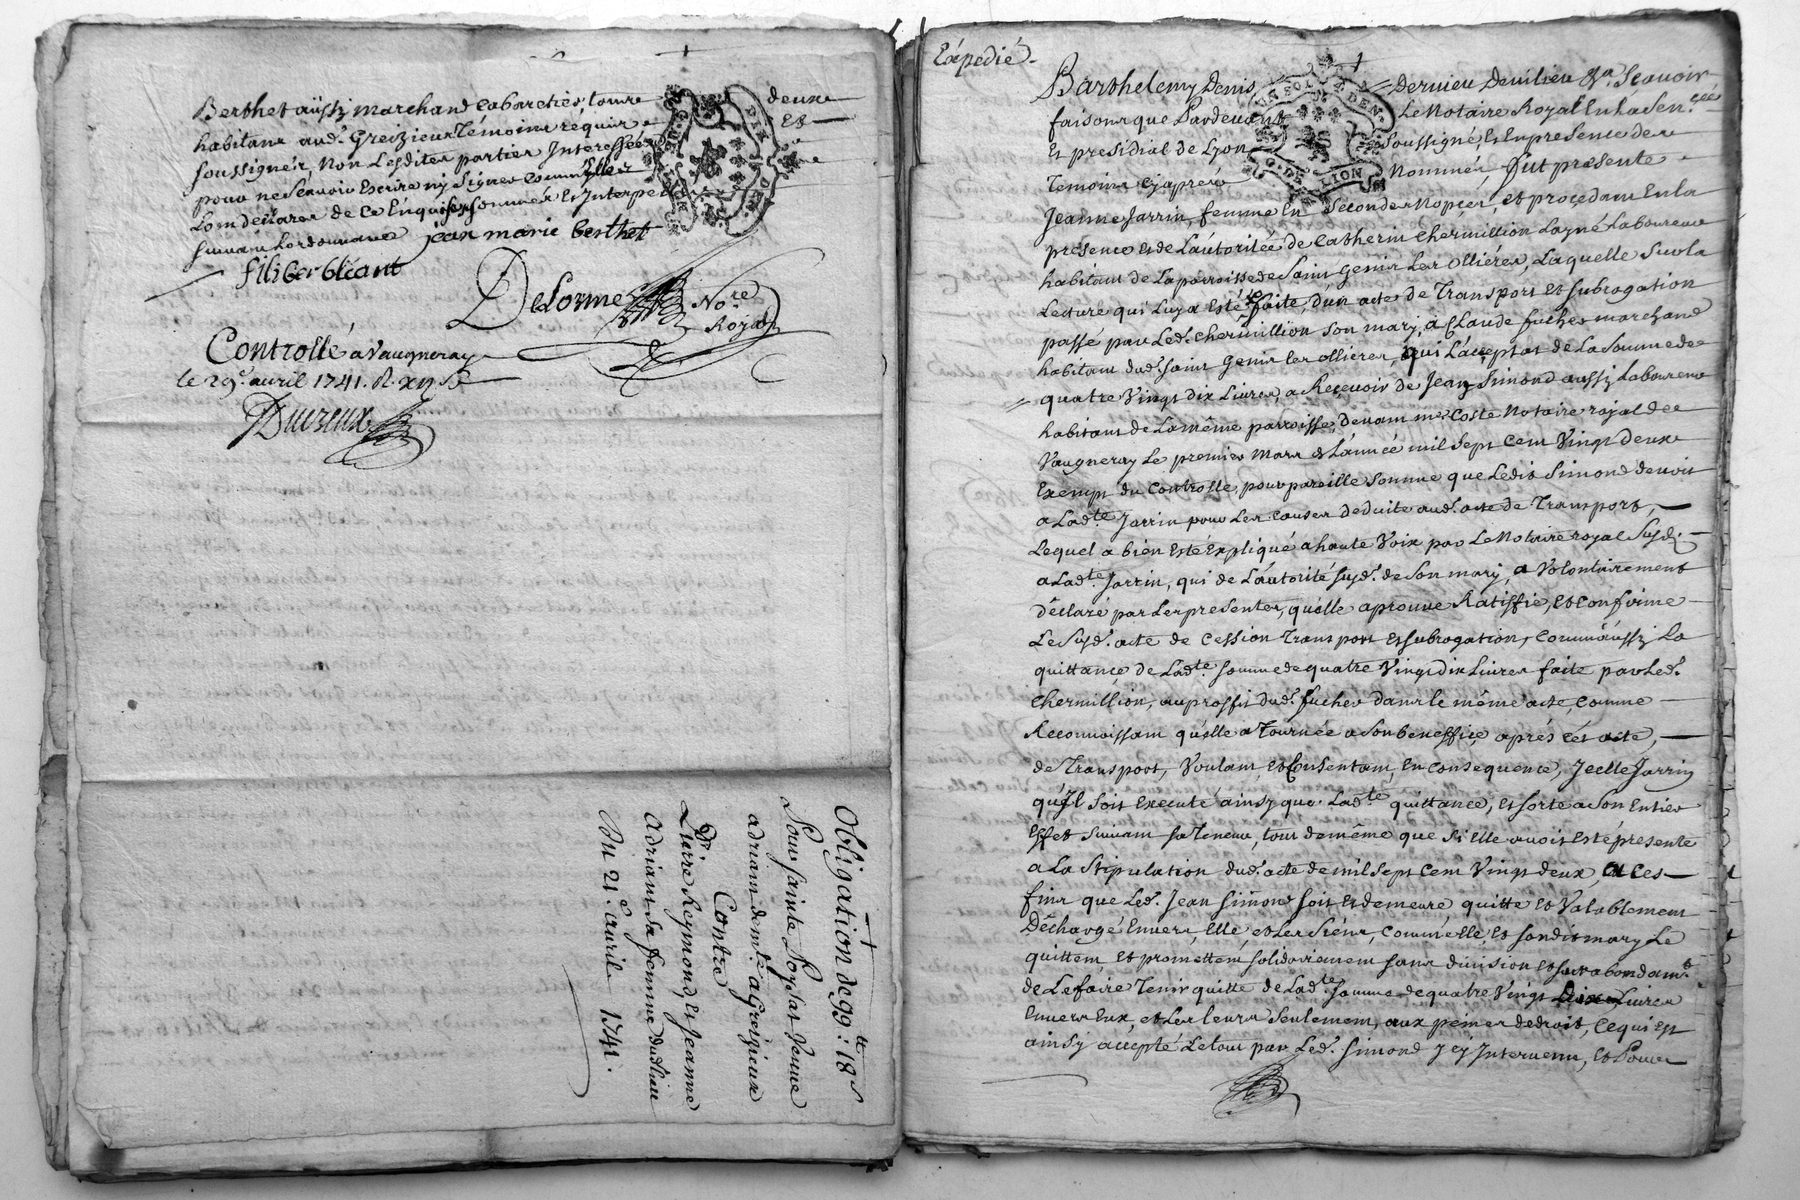 Berthet aüssy marchand cabaretier, tous deux
habitans aud. Greizieux Témoins requis Et
soussignés, Non Lesdites parties Interessées
pour ne scavoir Escrire ny signer comm'elles
L'ont déclaré de ce Enquis sommés Et Interpe
suivant Lordonnance jean marie berthet
filiber bleant
DeLorme No.re
Royal
Controllé a Vaugneray
le 29e. avril 1741. R. xij s
Ducreux
Obligation de 99tt: 18s
Pour sainte Poyplat Veuve
adriam demte. a Greizieux
Contre
Pierre Reymond, et Jeanne
Adriam sa femme dudlieu
Du 21e. avril 1741.
Expedié
Barthelemy Denis Dernieu Denilieu Scavoir
faisons que Pardevant Le Notaire Royal En la Sen.cée
Et presidial de Lyon soussigné, Et En presence des
Temoins cy après Nommés, fut presente
Jeanne Jarrin, femme En secondes Nopces, et procedant En la
presence et de L'autorité de Catherin Chermillion Layné Laboureur
habitant de La parroisse de Saint Genis Les Ollières, Laquelle sur la
Lecture qui Luy a Esté faite, d'un acte de Transport et subrogation
passé par Led. Chermillion son mary, à Claude fucher marchand
habitant dud. saint Genis les ollieres, qui L'accepta de La somme de
quatre Vingt dix Livres, a Reçevoir de Jean Simond aussy Laboureur
habitant de La même parroisse, devant me. Coste Notaire royal de
Vaugneray Le premier mars de L'année mil sept cent Vingt deux
Exempt du Controlle, pour pareille somme que Ledit Simond devoit
a Ladte. Jarrin pour Les causes deduite aud. acte de Transport,
Lequel a bien Esté Expliqué a haute Voix par Le Notaire royal Susd.
a Ladte. Jarrin, qui de L'autorité susd. de son mary, a Volontairement
déclaré par Les presentes, qu'elle aprouve Ratiffie, et confirme
Le Susd. acte de Cession Transport et subrogation, comm'aussy La
quittance de Ladte. somme de quatre Vingt dix Livres faite par Led.
Chermillion, au proffit dud. fucher dans le même acte, comme
Reconnoissant qu'elle a Tournée a son beneffice après cet acte,
de Transport, Voulant, et Consentant, En consequence, Jcelle Jarrin
qu'Jl soit Executé ainsy que Ladte. quittance, et sorte a son Entier
Effet suivant sa Teneur, tout de même que si Elle avoit Esté presente
a La Stipulation dud. acte de mil sept cent Vingt deux, a ces
fins que Led. Jean Simond soit Et demeure quitte et Valablement
Déchargé Envers, Elle, et Les siens, comm'elle, et sondit mary Le
quittent, et promettent solidairement sans division et surabondamt.
de Le faire Tenir quitte de Ladte. somme de quatre Vingt dix Livres
Envers Eux, et Les Leurs seulement, aux peines de droit, ce qui Est
ainsy accepté Le tout par Led. Simond Jcy Intervenu, et Pour